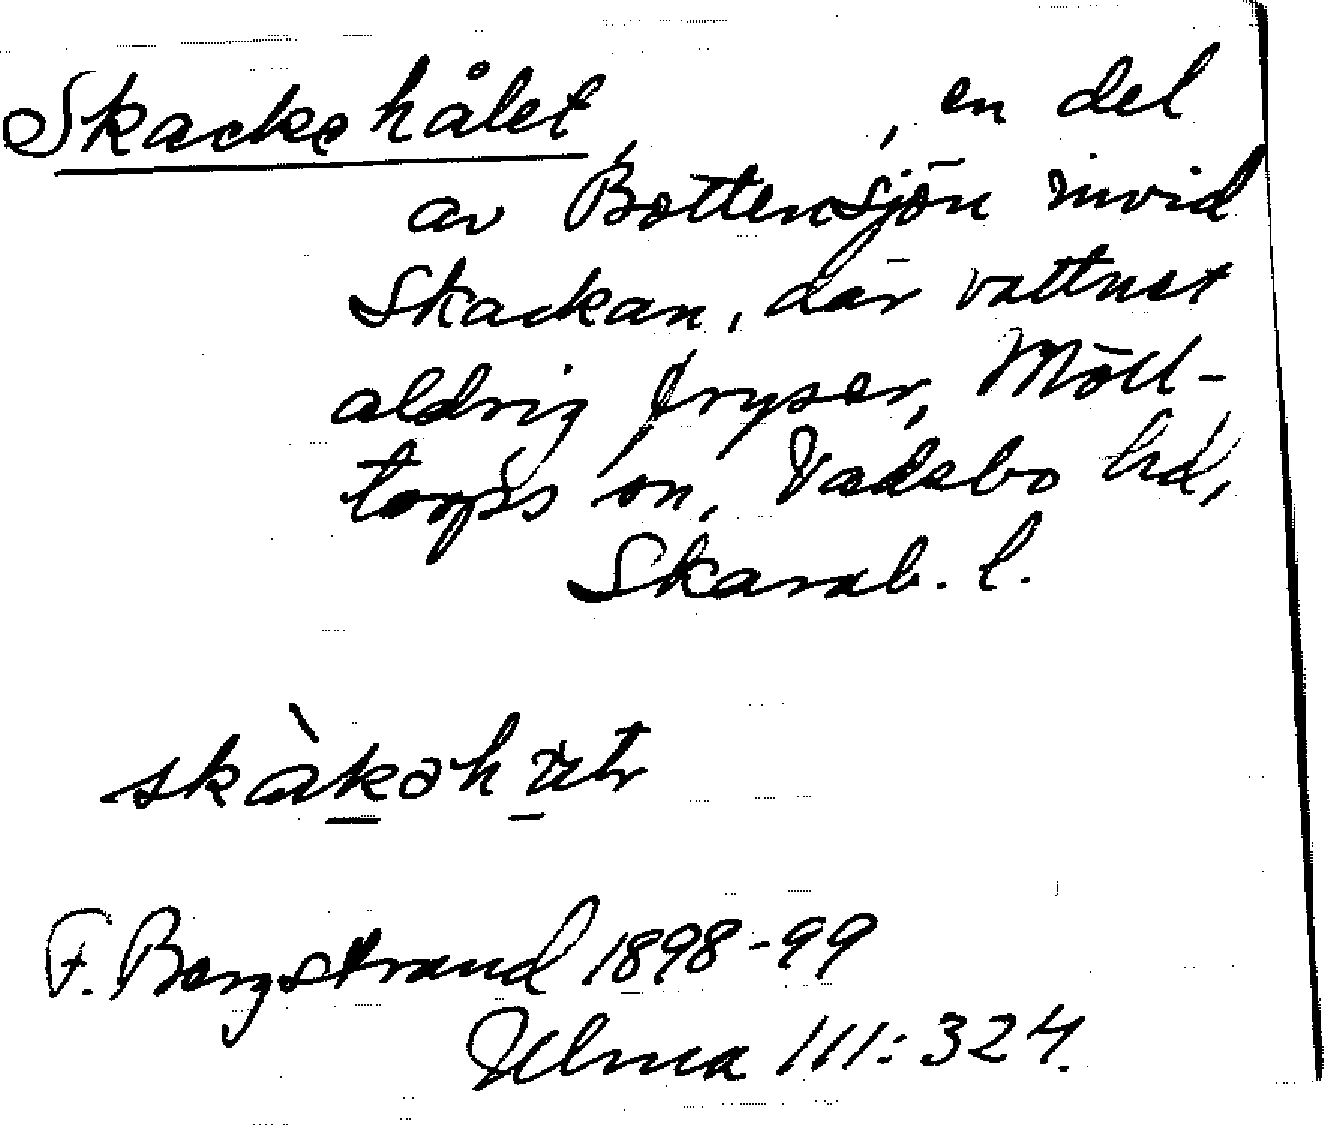 Skackehålet, en del
av Bottensjön invid
Skackan, där vattnet
aldrig fryser, Möll-
torps sn, Vadsbo hd,
Skarab. l.
F. Bergstrand 1898-99
Ulma 111:324.